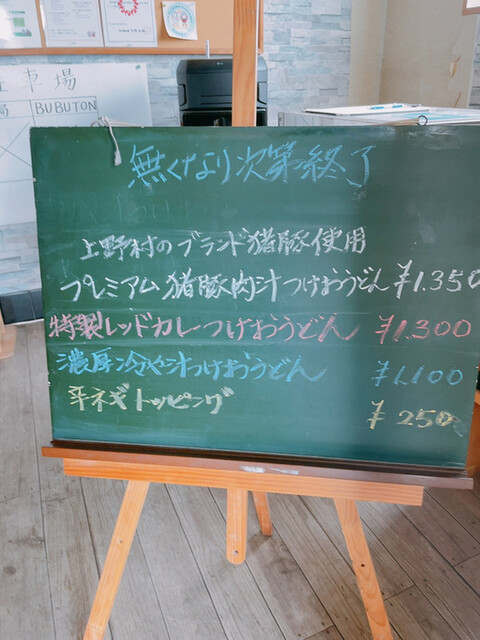 車場
BUBUTON
無くなり次第終了
上野村のブランド猪豚使用
プレミアム猪豚肉汁つけおうどん ¥1.350
特製レッドカレーつけおうどん ¥1.300
濃厚冷や汁つけおうどん ¥1.100
平ネギトッピング ¥250